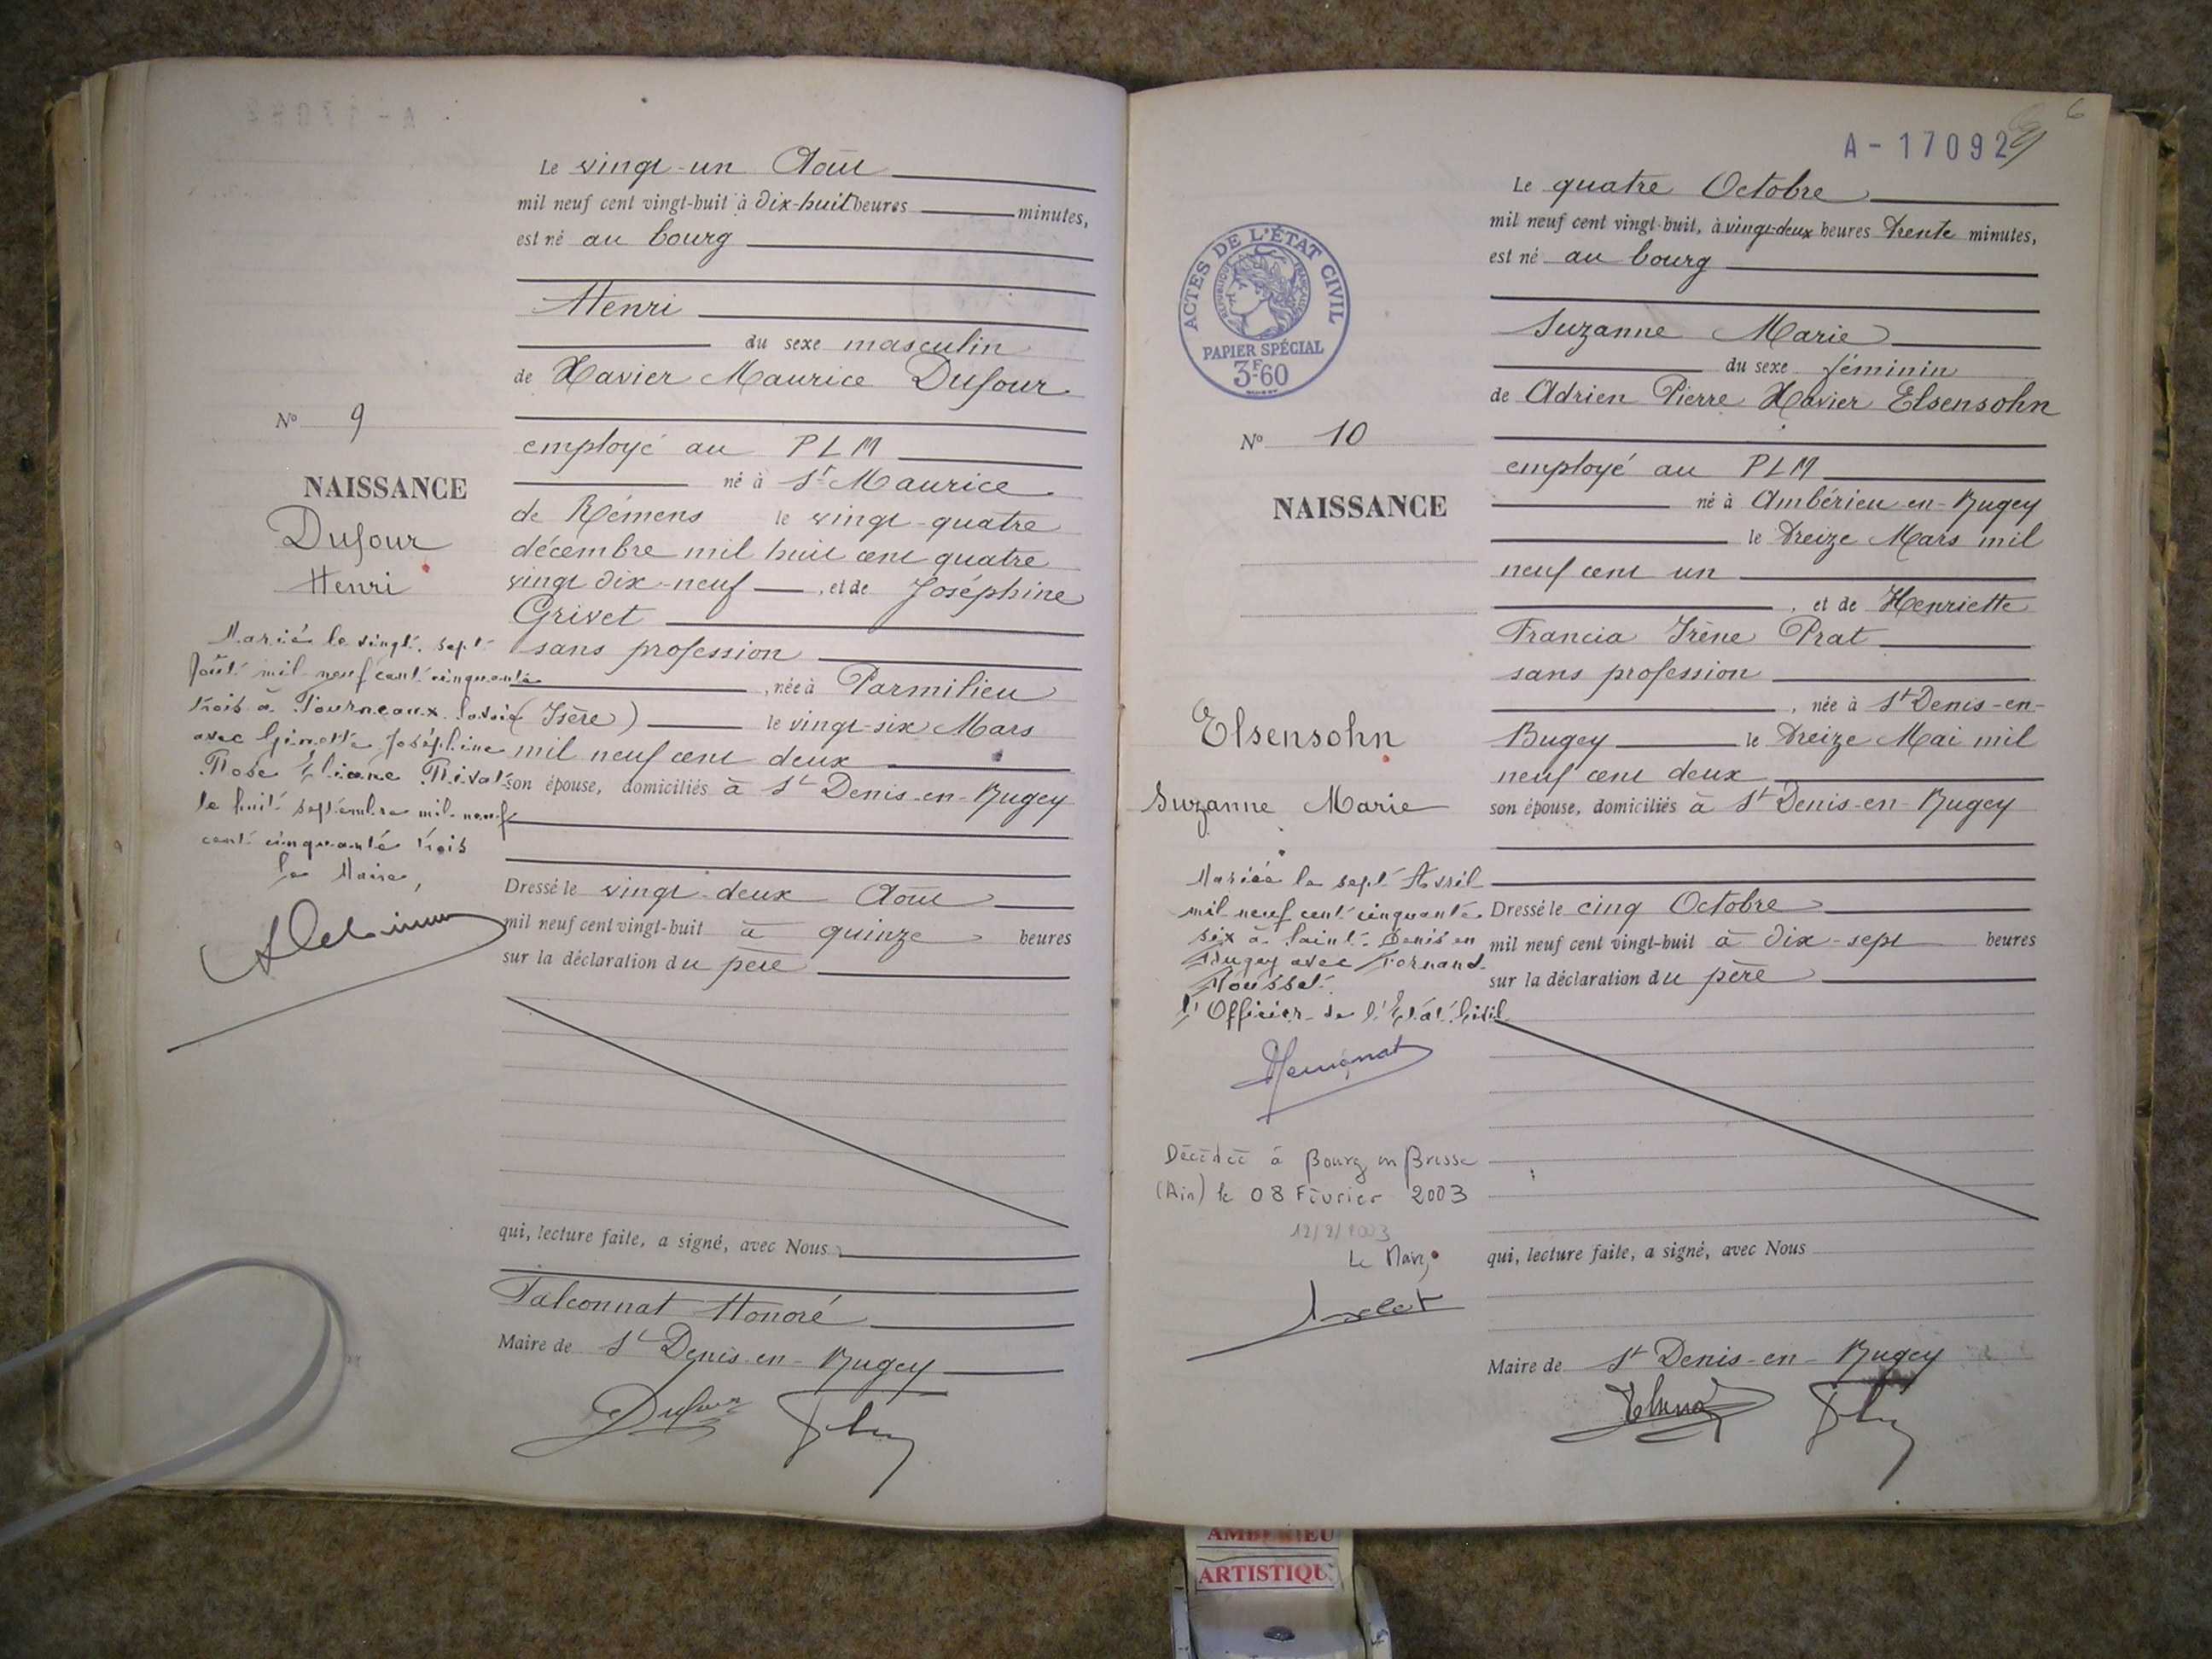 Le vingt-un Août
mil neuf cent vingt-huit à dix-huit heures minutes,
est né au bourg
Henri
du sexe masculin
de Xavier Maurice Dufour
employé au PLM
né à St Maurice
de Rémens le vingt-quatre
décembre mil huit cent quatre
vingt dix-neuf, et de Joséphine
Grivet
sans profession
, née à Parmilieu
(Isère) le vingt-six Mars
mil neuf cent deux
son épouse, domiciliés à St Denis-en-Bugey
Dressé le vingt-deux Août
mil neuf cent vingt-huit à quinze heures
sur la déclaration du père
qui, lecture faite, a signé, avec Nous
Falconnat Honoré
Maire de St Denis-en-Bugey
Dufour
No 9
NAISSANCE
Dufour
Henri
Marié le vingt-sept
Août mil neuf cent cinquante
trois à
avec Ginette Joséphine
Rose Eliane Rival
le huit septembre mil neuf
cent cinquante trois
Le Maire,
A-17092
6
Le quatre Octobre
mil neuf cent vingt-huit, à vingt-deux heures trente minutes,
est né au bourg
Suzanne Marie
du sexe féminin
de Adrien Pierre Xavier Elsensohn
employé au PLM
né à Ambérieu-en-Bugey
le treize Mars mil
neuf cent un
, et de Henriette
Francia Irène Prat
sans profession
, née à St Denis-en-
Bugey le treize Mai mil
neuf cent deux
son épouse, domiciliés à St Denis-en-Bugey
Dressé le cinq Octobre
mil neuf cent vingt-huit à dix-sept heures
sur la déclaration du père
qui, lecture faite, a signé, avec Nous
Maire de St Denis-en-Bugey
ACTES DE L'ÉTAT CIVIL
RÉPUBLIQUE FRANÇAISE
PAPIER SPÉCIAL
3F60
No 10
NAISSANCE
Elsensohn
Suzanne Marie
Mariée le sept Avril
mil neuf cent cinquante
six à Saint-Denis en
Bugey avec Fernand
Rousset.
L'Officier de l'Etat Civil
Décédée à Bourg en Bresse
(Ain) le 08 Février 2003
12/2/2003
Le Maire
AMBERIEU
ARTISTIQU